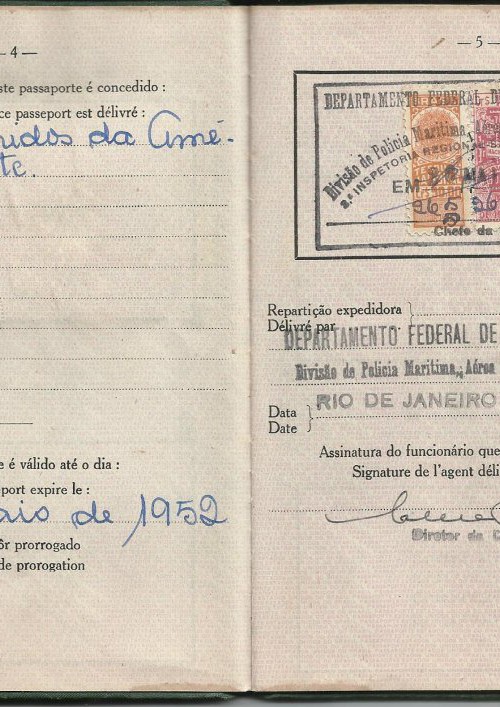 — 4 —
ste passaporte é concedido :
ce passeport est délivré :
nidos da Amé-
te.
e é válido até o dia :
port expire le :
aio de 1952
ôr prorrogado
de prorogation
— 5 —
DEPARTAMENTO FEDERAL DE
Divisão de Policia Maritima, Aérea
2.ª INSPETORIA REGIONAL
EM
Chefe da
Repartição expedidora
Délivré par
DEPARTAMENTO FEDERAL DE
Divisão de Policia Maritima, Aérea
RIO DE JANEIRO
Data
Date
Assinatura do funcionário que
Signature de l'agent déli
Diretor da